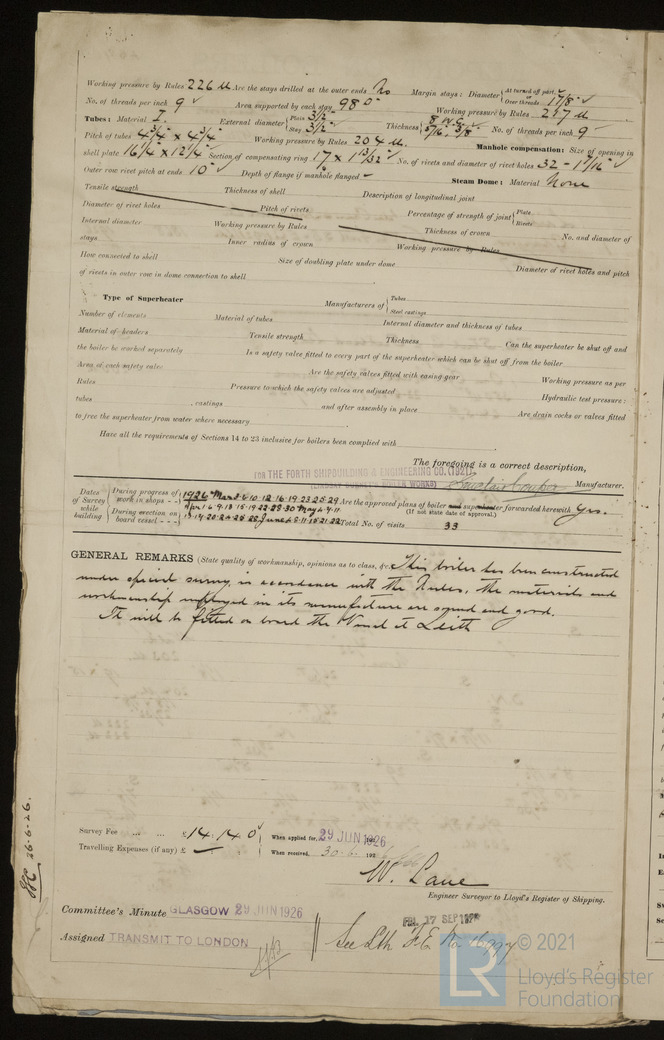 Working pressure by Rules 226 lbs Are the stays drilled at the outer ends No Margin stays: Diameter { At turned off part, or Over threads 1 7/8"
No. of threads per inch 9 Area supported by each stay 98 □" Working pressure by Rules
Tubes: Material I. External diameter { Plain 3 1/2" Stay 3 1/2" Thickness { 8 W.G. 5/16" 3/8" No. of threads per inch 9
Pitch of tubes 4 3/4 x 4 3/4 Working pressure by Rules 204 lbs. Manhole compensation: Size of opening in
shell plate 16 1/4 x 12 1/4 Section of compensating ring 17 x 1 13/32 No. of rivets and diameter of rivet holes 32 - 1 1/16"
Outer row rivet pitch at ends 10" Depth of flange if manhole flanged – Steam Dome: Material None
Tensile strength Thickness of shell Description of longitudinal joint
Diameter of rivet holes Pitch of rivets Percentage of strength of joint { Plate Rivets
Internal diameter Working pressure by Rules Thickness of crown No. and diameter of
stays Inner radius of crown Working pressure by Rules
How connected to shell Size of doubling plate under dome Diameter of rivet holes and pitch
of rivets in outer row in dome connection to shell
Type of Superheater Manufacturers of { Tubes Steel castings
Number of elements Material of tubes Internal diameter and thickness of tubes
Material of headers Tensile strength Thickness Can the superheater be shut off and
the boiler be worked separately Is a safety valve fitted to every part of the superheater which can be shut off from the boiler
Area of each safety valve Are the safety valves fitted with easing gear Working pressure as per
Rules Pressure to which the safety valves are adjusted Hydraulic test pressure:
tubes castings and after assembly in place Are drain cocks or valves fitted
to free the superheater from water where necessary
Have all the requirements of Sections 14 to 23 inclusive for boilers been complied with
The foregoing is a correct description,
FOR THE FORTH SHIPBUILDING & ENGINEERING CO. (1921)
Manufacturer.
Dates of Survey while building { During progress of work in shops - - 1926 Mar 3.8.10.12.16.19.23.25.29 Are the approved plans of boiler and superheater forwarded herewith Yes.
Apr 1.6.9.13.15.19.22.28.30 May 4.11 (If not state date of approval.)
During erection on board vessel - - - 13.14.20.24.25.28. June 2.8.11.15.21.22 Total No. of visits 33
GENERAL REMARKS (State quality of workmanship, opinions as to class, &c. This boiler has been constructed
under special survey in accordance with the Rules, the materials and
workmanship employed in its manufacture are sound and good.
It will be fitted on board the Vessel at Leith
Survey Fee ... ... £14 : 14 : 0 When applied for, 29 JUN 1926
Travelling Expenses (if any) £ — : : When received, 30.6. 192
W. Lane
Engineer Surveyor to Lloyd's Register of Shipping.
Committee's Minute GLASGOW 29 JUN 1926
FRI. 17 SEP 1926
Assigned TRANSMIT TO LONDON
See Lth F.E. No.
26.6.26.
© 2021
LR
Lloyd's Register
Foundation